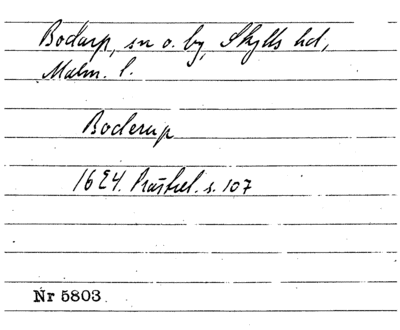 Bodarp, sn o. by, Skytts hd,
Malm. l.
Boderup
1624. Prästrel. s. 107
Nr 5803